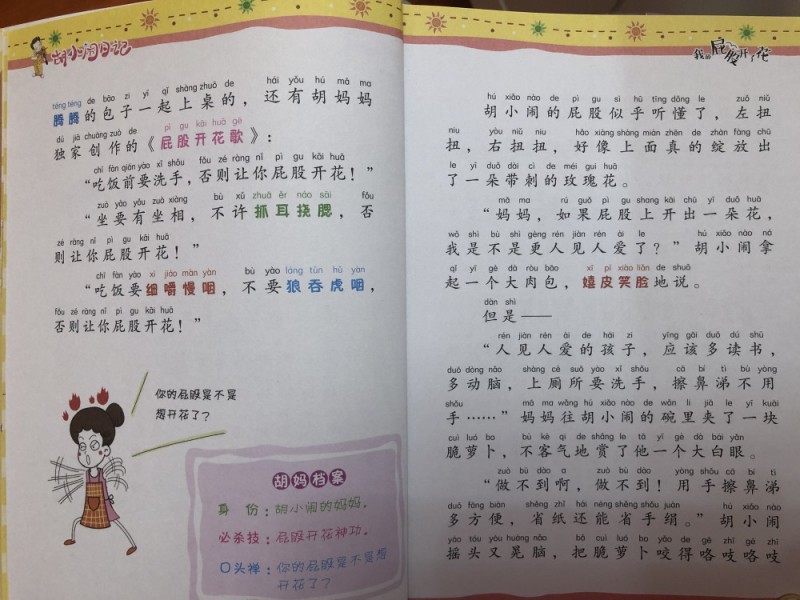 胡小闹日记
téng téng de bāo zi yī qǐ shàng zhuō de hái yǒu hú mā ma
腾腾的包子一起上桌的，还有胡妈妈
dú jiā chuàng zuò de pì gu kāi huā gē
独家创作的《屁股开花歌》：
chī fàn qián yào xǐ shǒu fǒu zé ràng nǐ pì gu kāi huā
“吃饭前要洗手，否则让你屁股开花！”
zuò yào yǒu zuò xiàng bù xǔ zhuā ěr náo sāi fǒu
“坐要有坐相，不许抓耳挠腮，否
zé ràng nǐ pì gu kāi huā
则让你屁股开花！”
chī fàn yào xì jiáo màn yàn bú yào láng tūn hǔ yàn
“吃饭要细嚼慢咽，不要狼吞虎咽，
fǒu zé ràng nǐ pì gu kāi huā
否则让你屁股开花！”
你的屁股是不是
想开花了？
胡妈档案
身 份：胡小闹的妈妈。
必杀技：屁股开花神功。
口头禅：你的屁股是不是想
开花了？
我的屁股开了花
hú xiǎo nào de pì gu sì hū tīng dǒng le zuǒ niǔ
胡小闹的屁股似乎听懂了，左扭
niu yòu niǔ niu hǎo xiàng shàng miàn zhēn de zhàn fàng chū
扭，右扭扭，好像上面真的绽放出
le yī duǒ dài cì de méi gui huā
了一朵带刺的玫瑰花。
mā ma rú guǒ pì gu shang kāi chū yī duǒ huā
“妈妈，如果屁股上开出一朵花，
wǒ shì bù shì gèng rén jiàn rén ài le hú xiǎo nào ná
我是不是更人见人爱了？”胡小闹拿
qǐ yī gè dà ròu bāo xī pí xiào liǎn de shuō
起一个大肉包，嬉皮笑脸地说。
dàn shì
但是——
rén jiàn rén ài de hái zi yīng gāi duō dú shū
“人见人爱的孩子，应该多读书，
duō dòng nǎo shàng cè suǒ yào xǐ shǒu cā bí tì bù yòng
多动脑，上厕所要洗手，擦鼻涕不用
shǒu mā ma wǎng hú xiǎo nào de wǎn li jiā le yī kuài
手……”妈妈往胡小闹的碗里夹了一块
cuì luó bo bù kè qi de shǎng le tā yī gè dà bái yǎn
脆萝卜，不客气地赏了他一个大白眼。
zuò bù dào a zuò bù dào yòng shǒu cā bí tì
“做不到啊，做不到！用手擦鼻涕
duō fāng biàn shěng zhǐ hái néng shěng shǒu juàn hú xiǎo nào
多方便，省纸还能省手绢。”胡小闹
yáo tóu yòu huàng nǎo bǎ cuì luó bo yǎo de gē zhī gē zhī
摇头又晃脑，把脆萝卜咬得咯吱咯吱